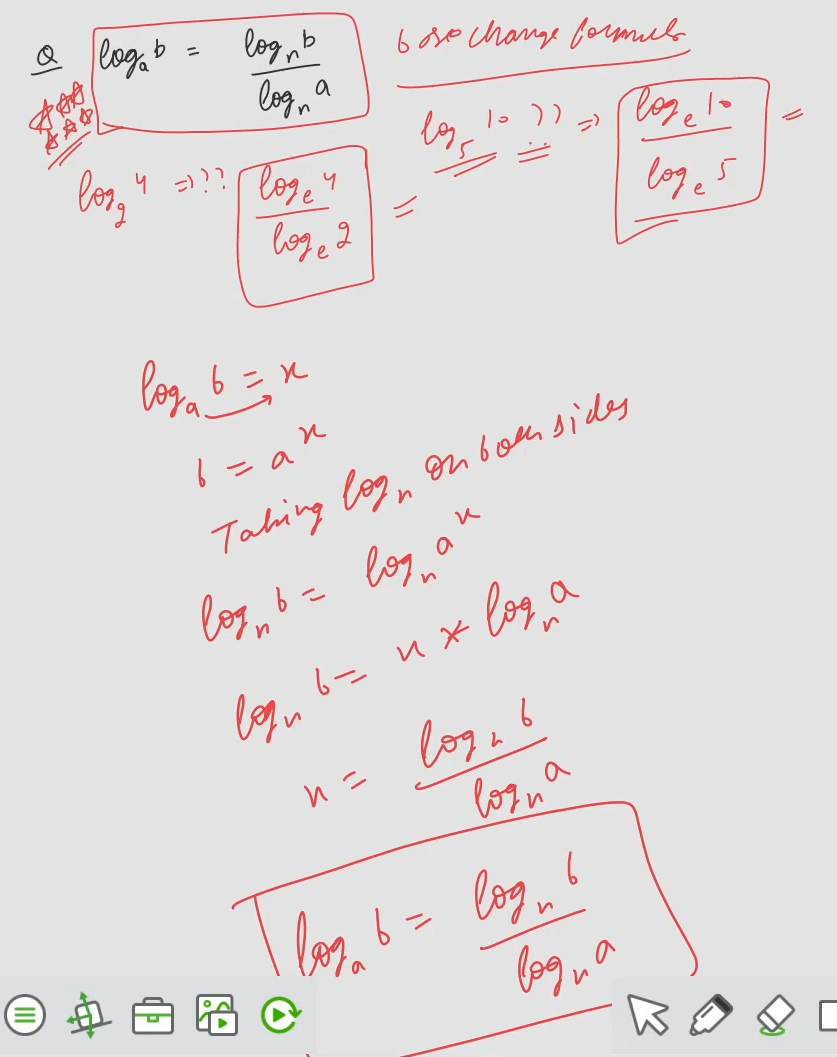 Q log_a b = log_n b / log_n a base change formula
log_2 4 => ?? log_e 4 / log_e 2 =
log_5 10 ?? => log_e 10 / log_e 5 =
log_a b = x
b = a^x
Taking log_n on both sides
log_n b = log_n a^x
log_n b = x * log_n a
x = log_n b / log_n a
log_a b = log_n b / log_n a